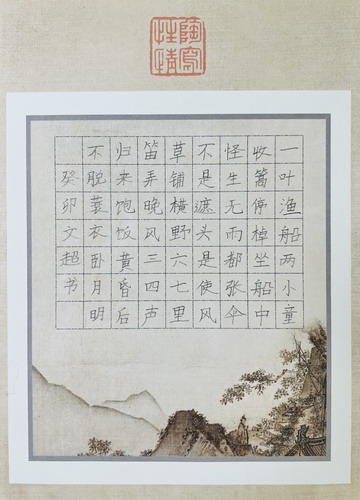 陶寫性情
一叶渔船两小童
收篙停棹坐船中
怪生无雨都张伞
不是遮头是使风
草铺横野六七里
笛弄晚风三四声
归来饱饭黄昏后
不脱蓑衣卧月明
癸卯文超书